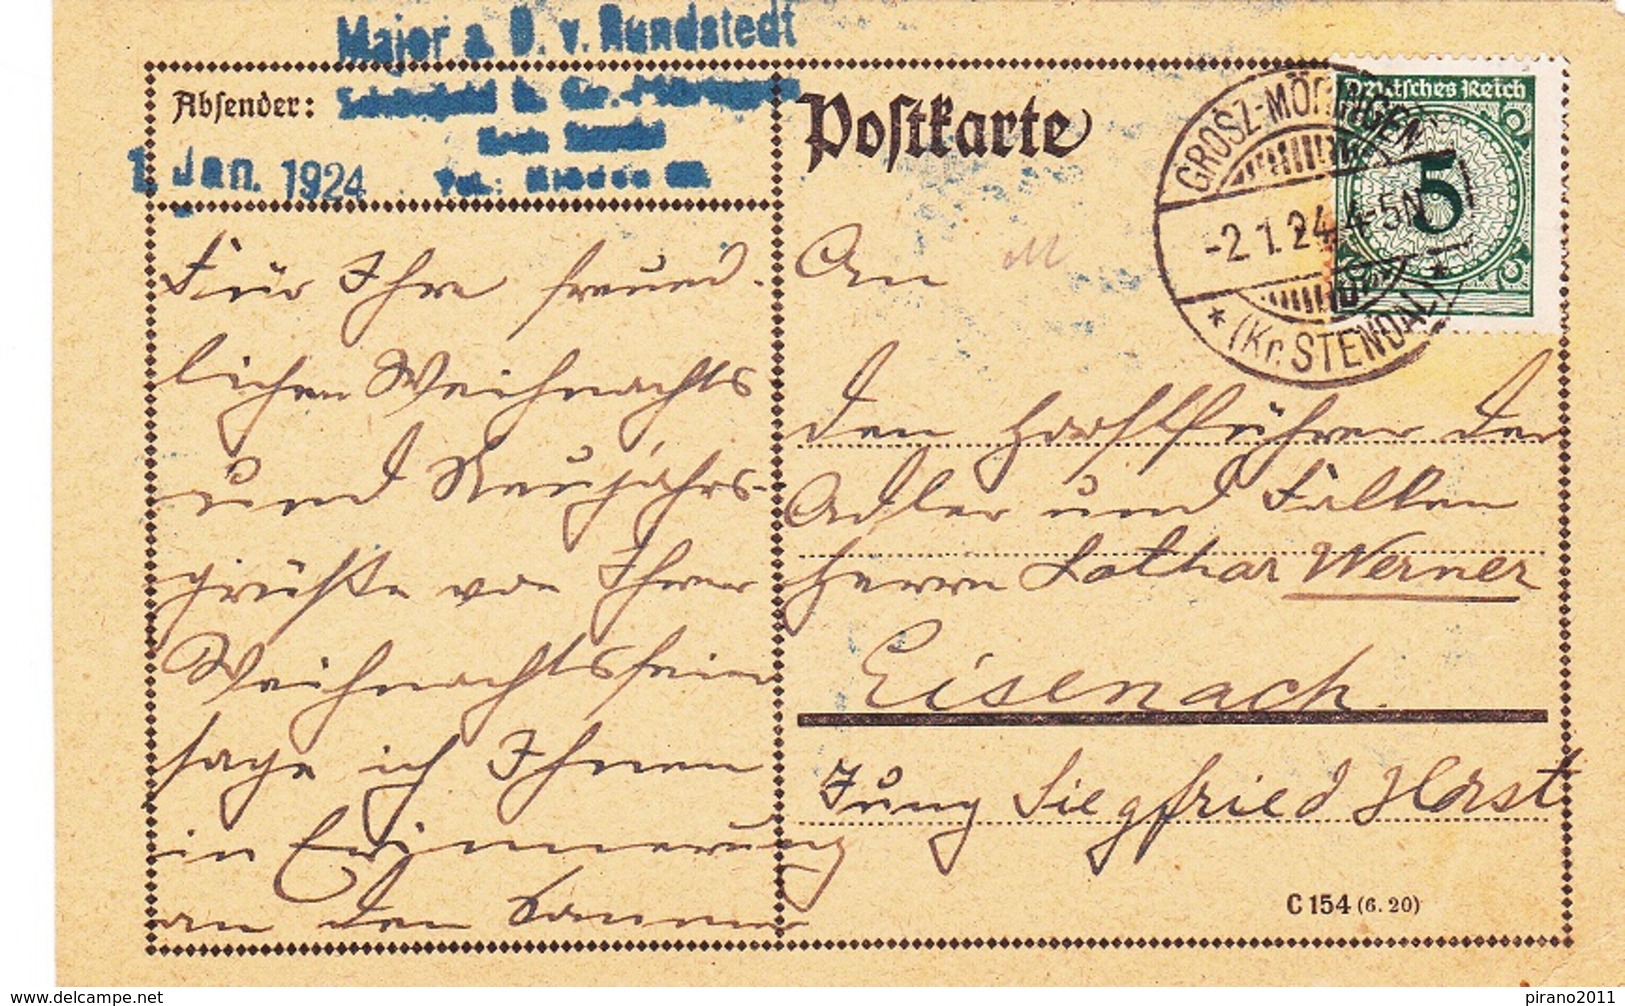 Major a. D. v. Rundstedt
Absender:
1. Jan. 1924
Tel.:
Postkarte
Deutsches Reich
5
GROSZ-MÖRINGEN
-2.1.24.4-5N
* (Kr. STENDAL) *
Für Ihre freund-
lichen Weihnachts
und Neujahrs-
grüße von Ihrer
Weihnachtsfeier
sage ich Ihnen
in Erinnerung
an den
An
den Horstführer der
Adler und Falken
Herrn Lothar Werner
Eisenach.
Jung Siegfried Horst
C 154 (6. 20)
www.delcampe.net
pirano2011